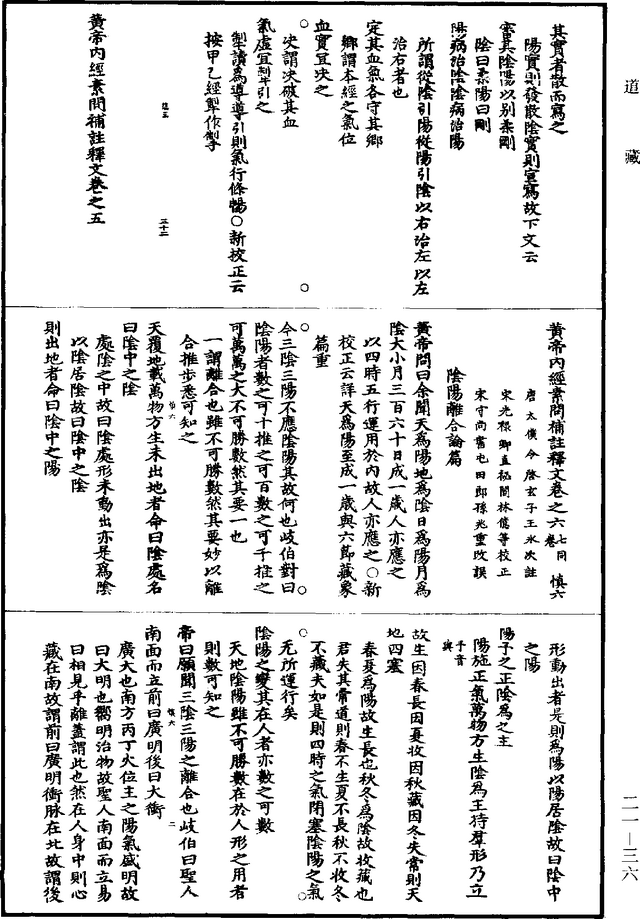 道藏
其實者散而寫之
陽實則發散陰實則宣寫故下文云
審其陰陽以別柔剛
陰曰柔陽曰剛
陽病治陰陰病治陽
所謂從陰引陽從陽引陰以右治左以左
治右者也
定其血氣各守其鄉
鄉謂本經之氣位
血實宜決之
決謂決破其血
氣虛宜掣引之
掣讀為導導引則氣行條暢○新校正云
按甲乙經掣作掣
三十二
黃帝內經素問補註釋文卷之五
黃帝內經素問補註釋文卷之六七同卷 慎六
唐太僕令啓玄子王冰次註
宋光祿卿直秘閣林億等校正
宋守尚書屯田郎孫兆重改誤
陰陽離合論篇
黃帝問曰余聞天為陽地為陰日為陽月為
陰大小月三百六十日成一歲人亦應之
以四時五行運用於內故人亦應之○新
校正云詳天為陽至成一歲與六節藏象
篇重
今三陰三陽不應陰陽其故何也岐伯對曰
陰陽者數之可十推之可百數之可千推之
可萬萬之大不可勝數然其要一也
一謂離合也雖不可勝數然其要妙以離
合推步悉可知之
天覆地載萬物方生未出地者命曰陰處名
曰陰中之陰
處陰之中故曰陰處形未動出亦是為陰
以陰居陰故曰陰中之陰
則出地者命曰陰中之陽
形動出者是則為陽以陽居陰故曰陰中
之陽
陽予之正陰為之主
陽施正氣萬物方生陰為主持羣形乃立
予音與
故生因春長因夏收因秋藏因冬失常則天
地四塞
春夏為陽故生長也秋冬為陰故收藏也
君失其常道則春不生夏不長秋不收冬
不藏夫如是則四時之氣閉塞陰陽之氣
无所運行矣
陰陽之變其在人者亦數之可數
天地陰陽雖不可勝數在於人形之用者
則數可知之
帝曰願聞三陰三陽之離合也岐伯曰聖人
慎六 二
南面而立前曰廣明後曰太衝
廣大也南方丙丁火位主之陽氣盛明故
曰大明也嚮明治物故聖人南面而立易
曰相見乎離蓋謂此也然在人身中則心
藏在南故謂前曰廣明衝脉在北故謂後
二一—三六